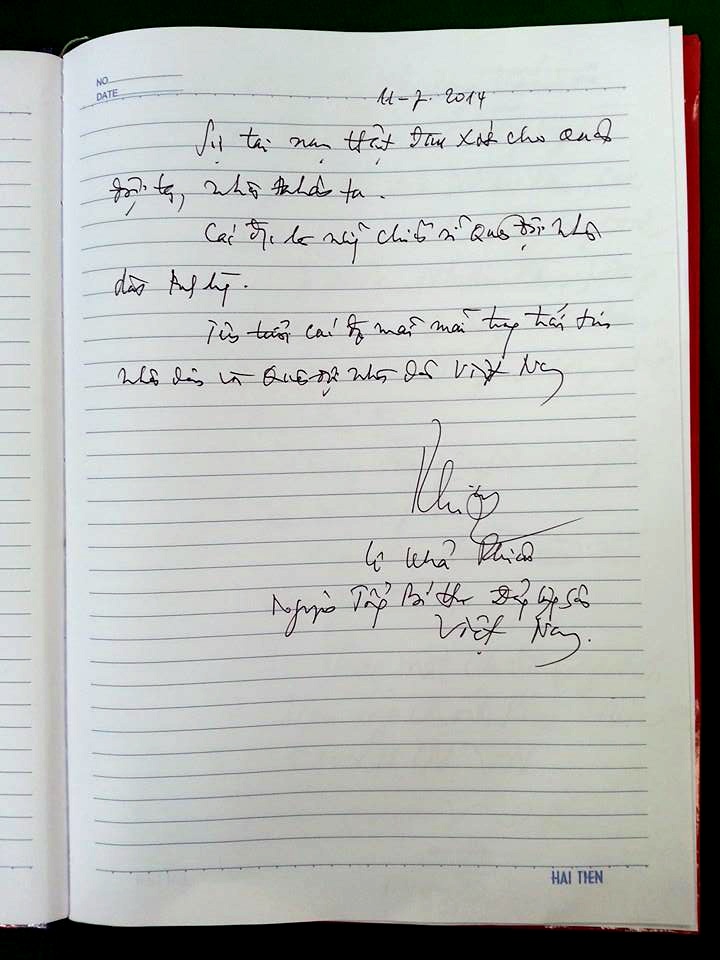 NO.
DATE
11-7-2014
Sự tai nạn thật đau xót cho quân
đội ta, nhân dân ta.
Các đ/c là những chiến sĩ Quân đội nhân
dân
các đ/c mãi mãi trong trái tim
nhân dân và Quân đội nhân dân Việt Nam
Lê Khả Phiêu
Nguyên Tổng Bí thư Đảng cộng sản
Việt Nam.
HAI TIEN